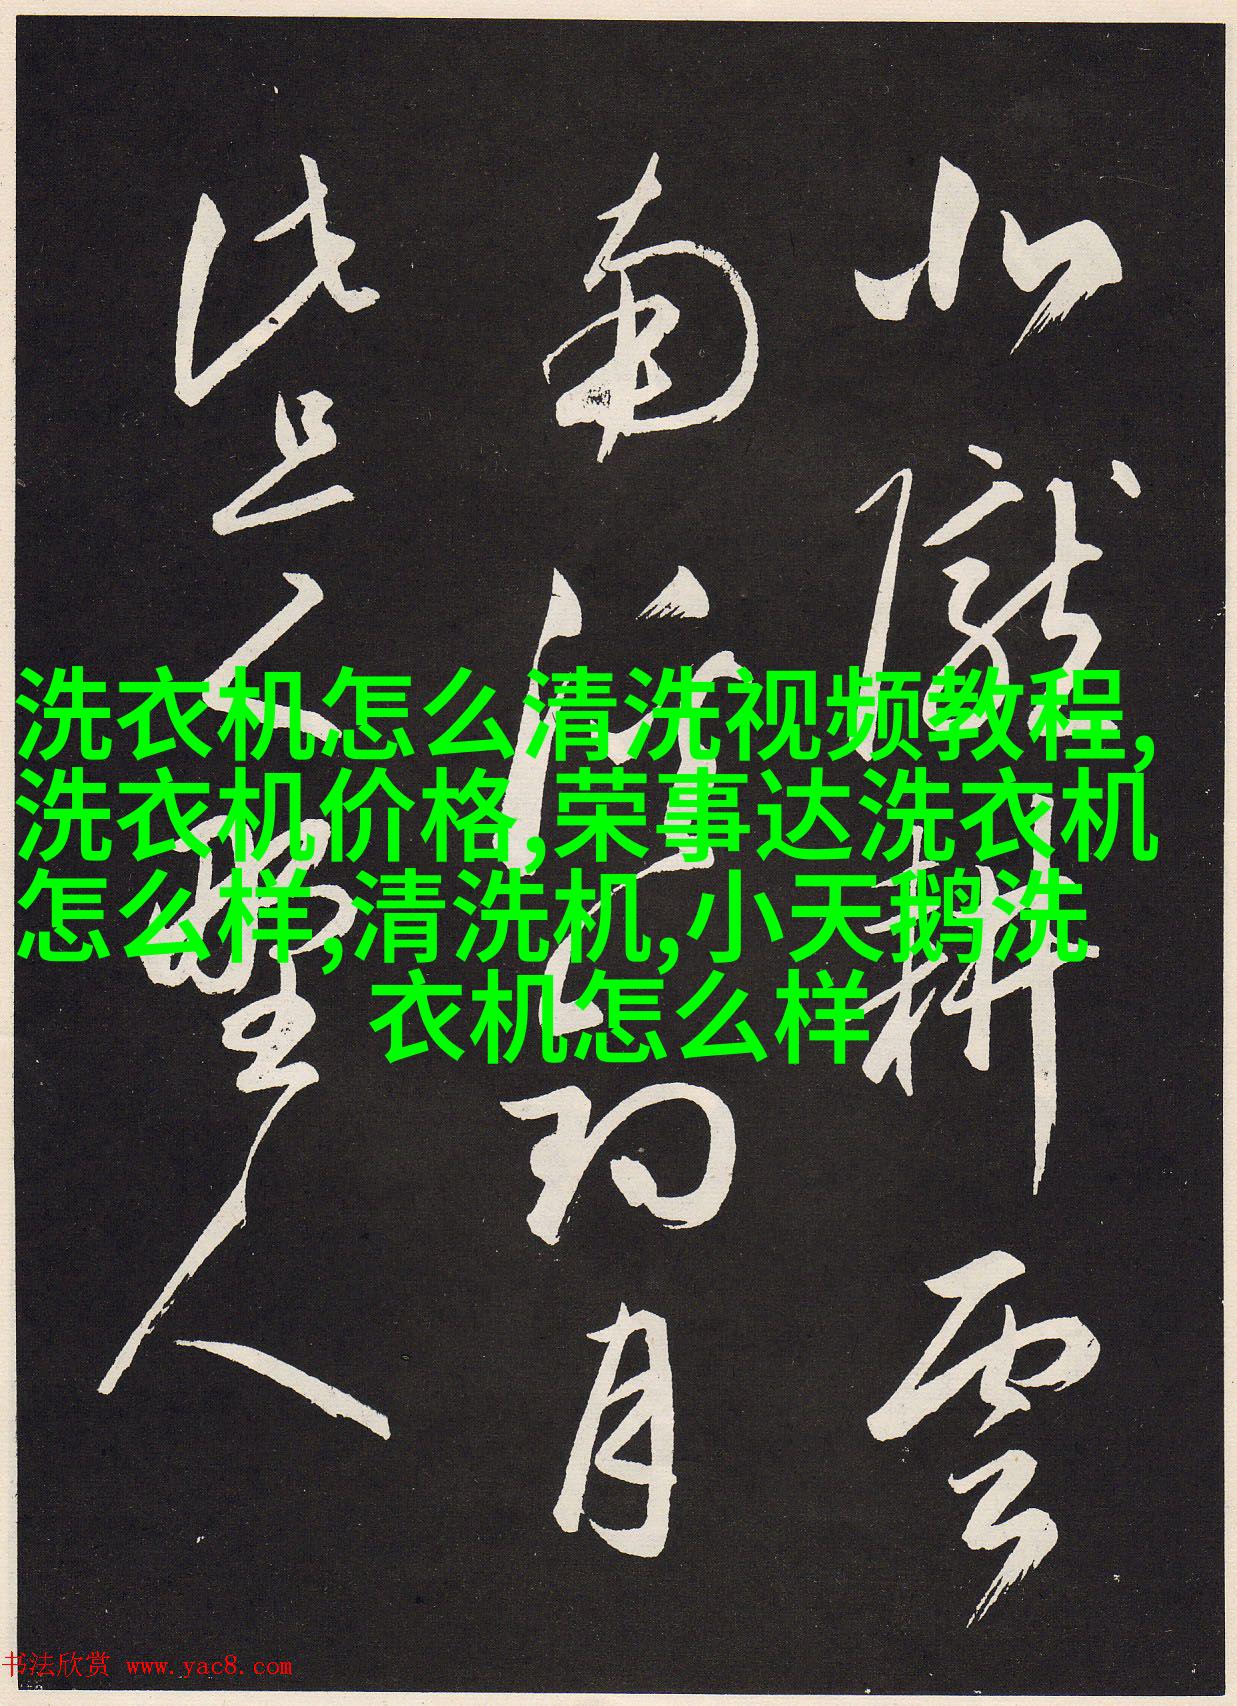 北隴耕雲
南溪釣月
此是野人
洗衣机怎么清洗视频教程,
洗衣机价格,荣事达洗衣机
怎么样,清洗机,小天鹅洗
衣机怎么样
书法欣赏 www.yac8.com